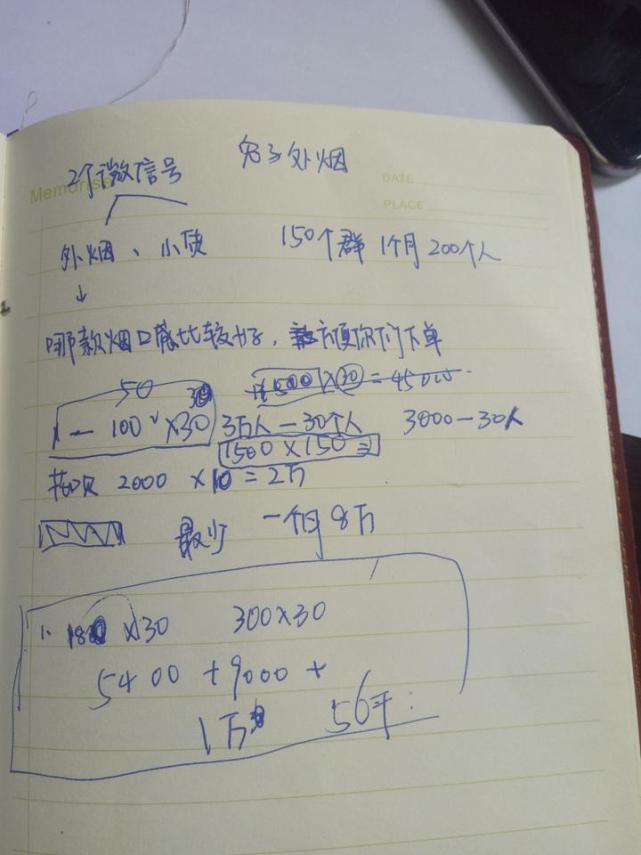 Memo
DATE
PLACE
2个微信号
处烟
外烟、小便
150个群 1个月 200个人
哪款烟口感比较好，方便你们下单
50 30
1500 ×30 = 45000
1 — 100 ×30
3万人 — 30个人
3000 — 30人
1500 × 150 =
2000 × 10 = 2万
最少 一个月 8万
1. 180 ×30
300×30
5400 + 9000 +
1万
56平